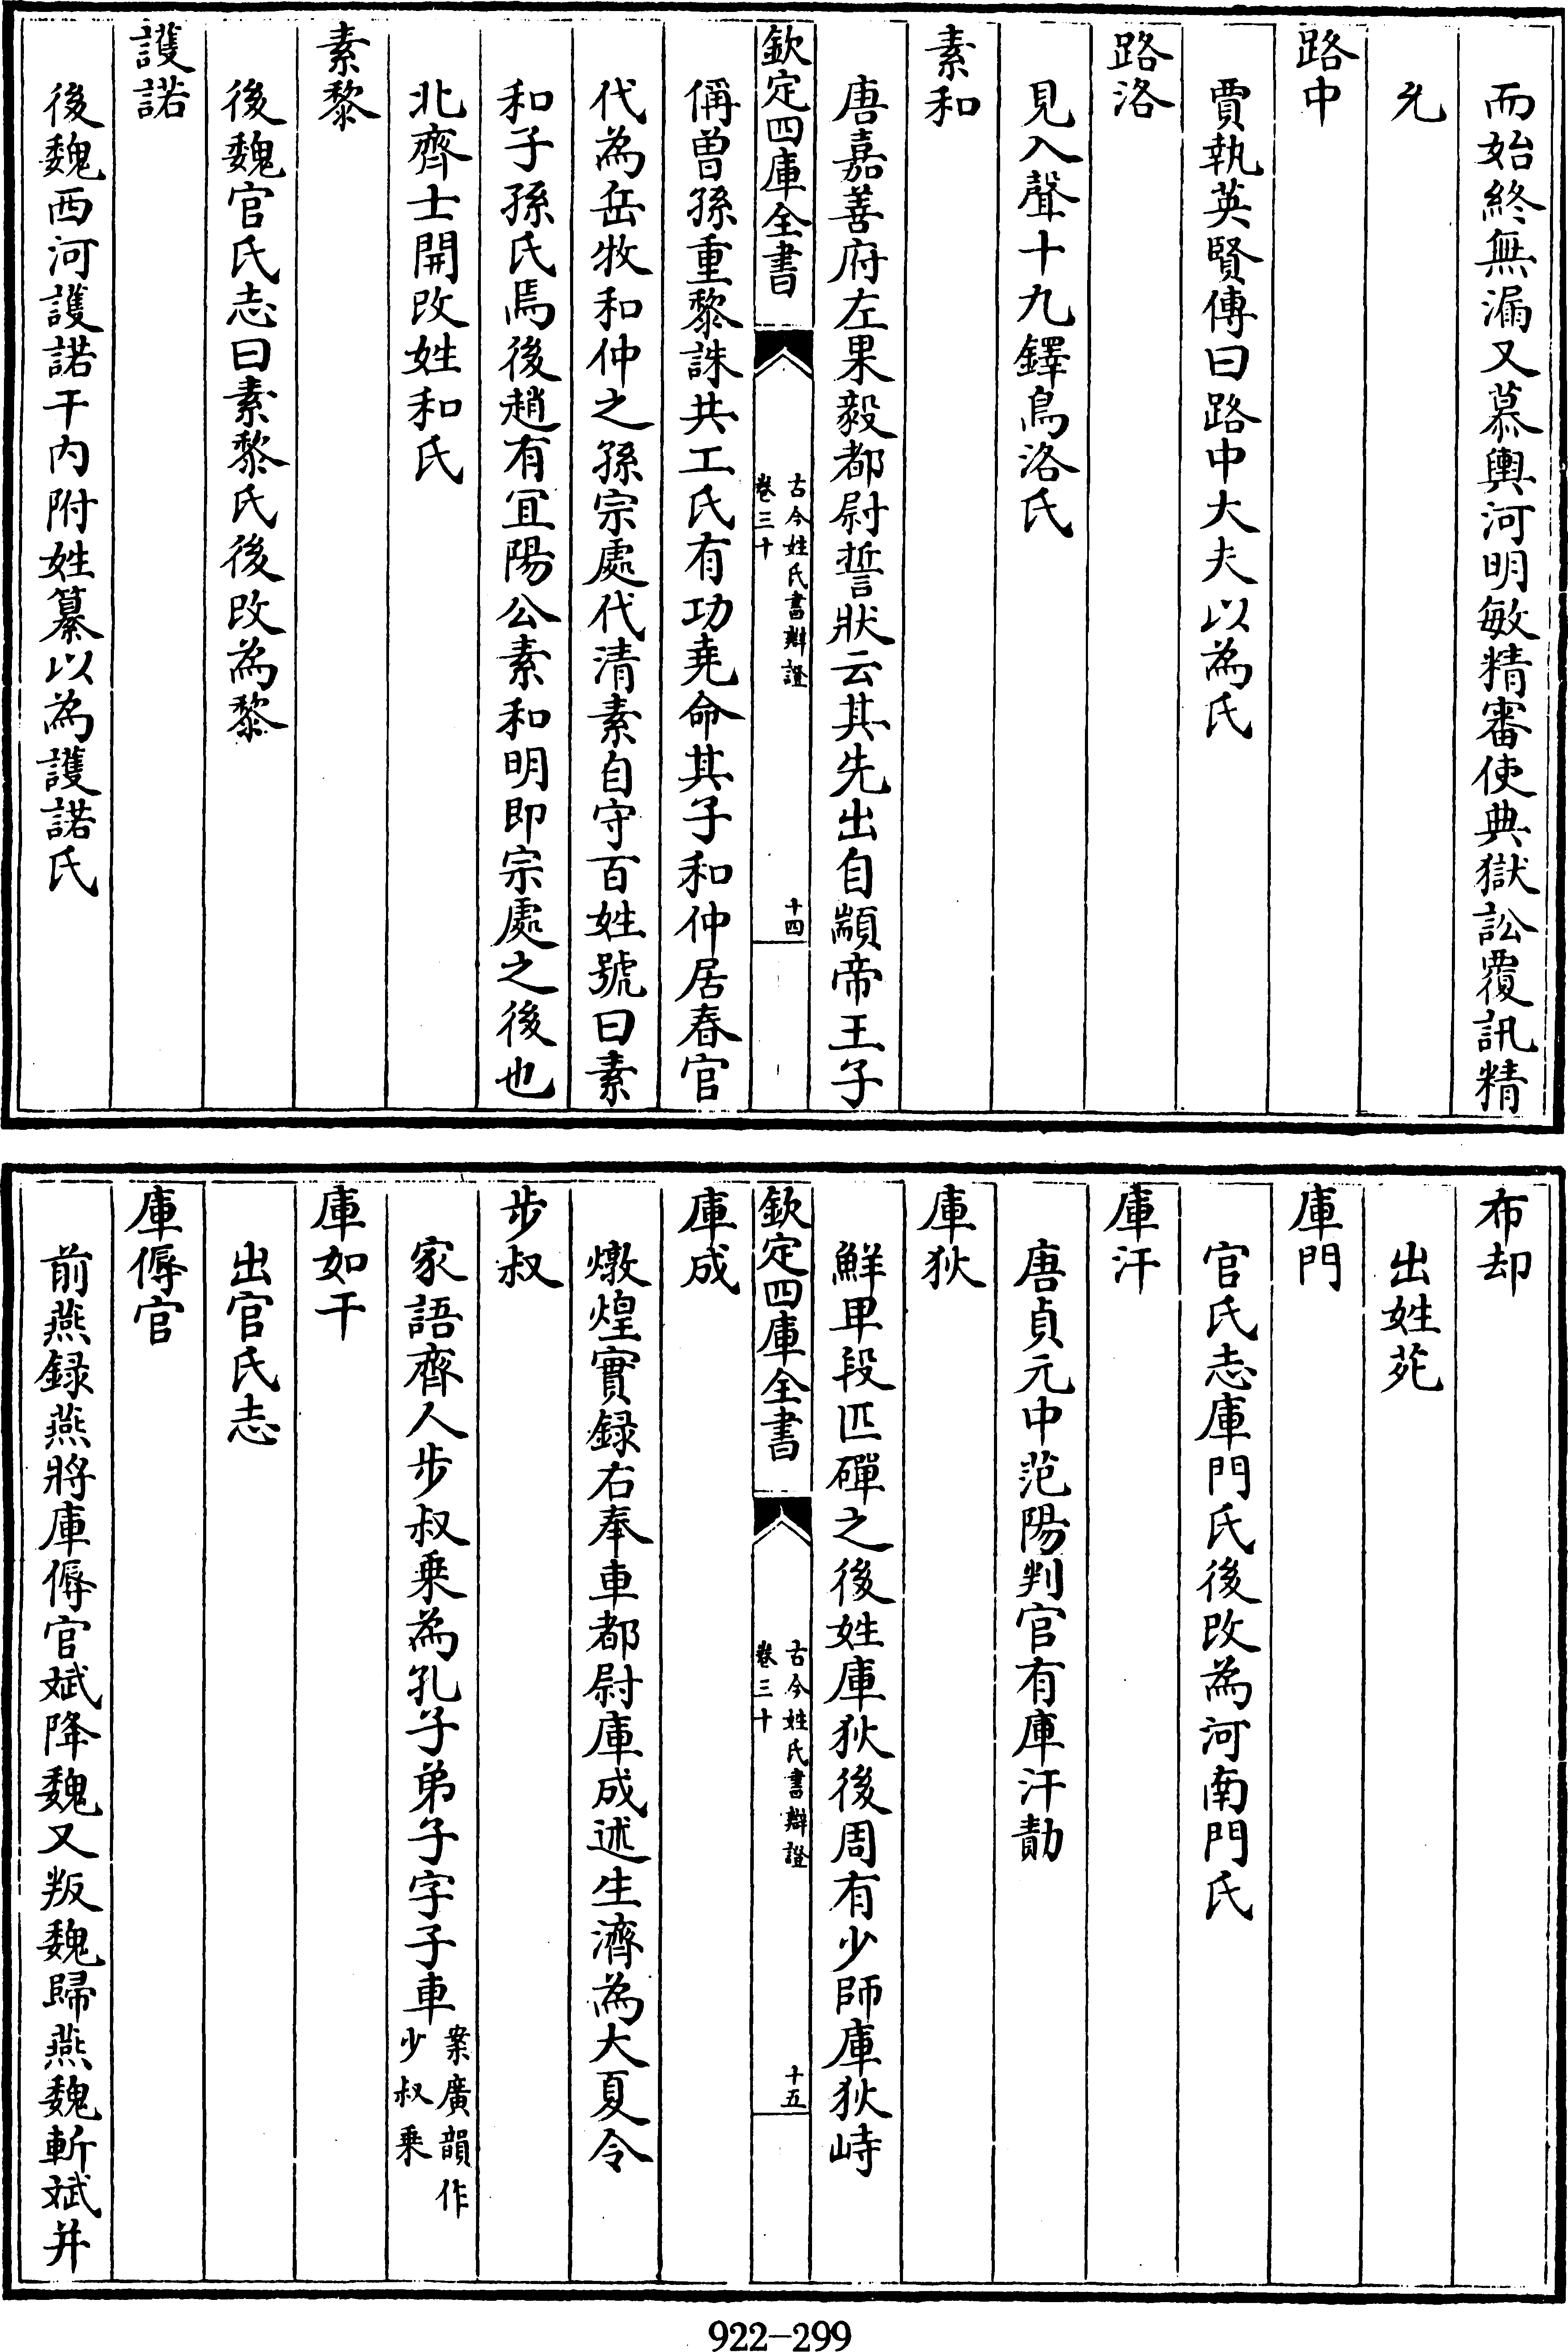 而始終無漏又慕輿河明敏精審使典獄訟覆訊精
允
路中
賈執英賢傳曰路中大夫以為氏
路洛
見入聲十九鐸烏洛氏
素和
唐嘉善府左果毅都尉誓狀云其先出自顓帝王子
欽定四庫全書
古今姓氏書辯證
卷三十
十四
偁曾孫重黎誅共工氏有功堯命其子和仲居春官
代為岳牧和仲之孫宗處代清素自守百姓號曰素
和子孫氏焉後趙有冝陽公素和明即宗處之後也
北齊士開改姓和氏
素黎
後魏官氏志曰素黎氏後改為黎
護諾
後魏西河護諾干內附姓纂以為護諾氏
布却
出姓苑
庫門
官氏志庫門氏後改為河南門氏
庫汗
唐貞元中范陽判官有庫汗勣
庫狄
鮮卑段匹磾之後姓庫狄後周有少師庫狄峙
欽定四庫全書
古今姓氏書辯證
卷三十
十五
庫成
燉煌實録右奉車都尉庫成述生濟為大夏令
步叔
家語齊人步叔乗為孔子弟子字子車案廣韻作少叔乗
庫如干
出官氏志
庫傉官
前燕録燕將庫傉官斌降魏又叛魏歸燕魏斬斌并
922-299